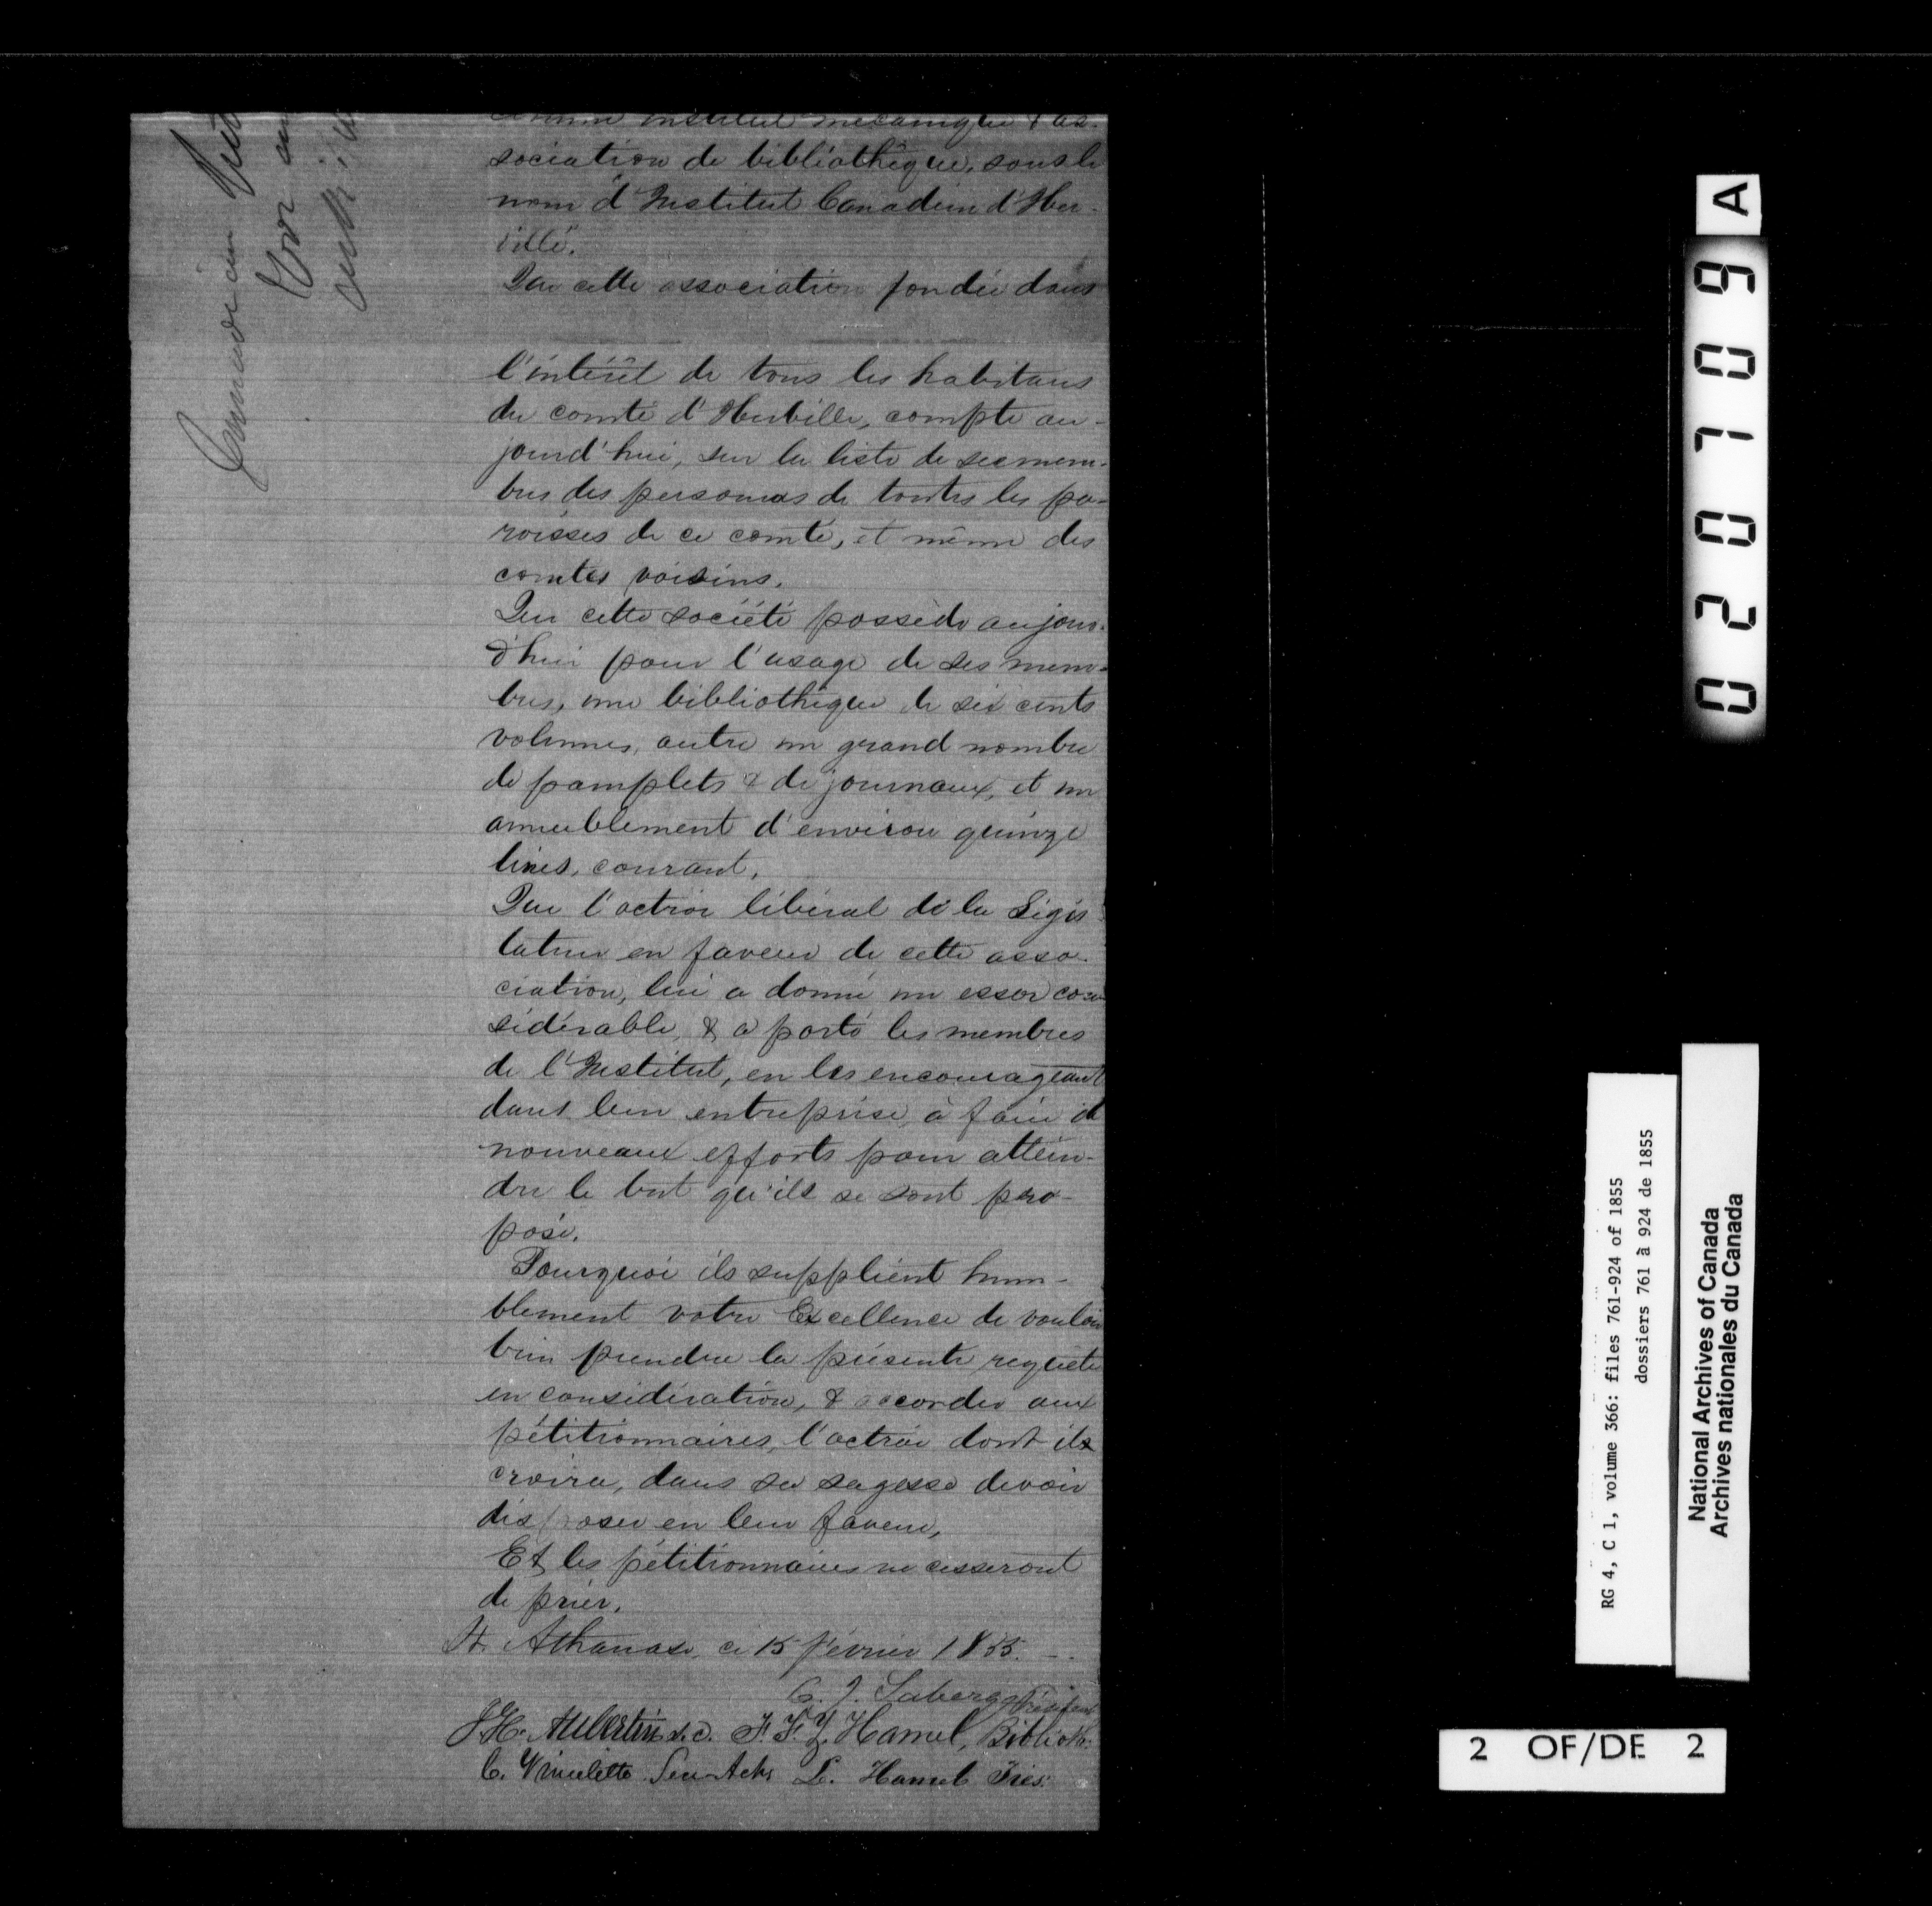 comme institut mécanique & as-
sociation de bibliothèque, sous le
nom d'Institut Canadien d'Iber-
ville.
Que cette association fondée dans
l'intérêt de tous les habitans
du comté d'Iberville, compte au-
jourd'hui, sur la liste de ses mem-
bres des personnes de toutes les pa-
roisses de ce comté, et même des
comtés voisins.
Que cette société possède aujour-
d'hui pour l'usage de ses mem-
bres, une bibliothèque de six cents
volumes, outre un grand nombre
de pamplets & de journaux, et un
ameublement d'environ quinze
livres, courant.
Que l'octroi libéral de la Légis
lature en faveur de cette asso-
ciation, lui a donné un essor con
sidérable, & a porté les membres
de l'Institut, en les encourageant
dans leur entreprise, à faire de
nouveaux efforts pour attein-
dre le but qu'ils se sont pro-
posé.
Pourquoi ils supplient hum-
blement votre Excellence de vouloir
bien prendre la présente requête
en considération, & accorder aux
pétitionnaires, l'octroi dont
croira, dans sa sagesse devoir
disposer en leur faveur,
Et les pétitionnaires ne cesseront
de prier.
St. Athanase, ce 15 février 1855.
C. J. Laberge Président
J. F. Z. Hamel, Biblioth.
L. Hamel Trés.
0 2 0 7 0 9 A
RG 4, C 1, volume 366: files 761-924 of 1855
dossiers 761 à 924 de 1855
National Archives of Canada
Archives nationales du Canada
2 OF/DE 2